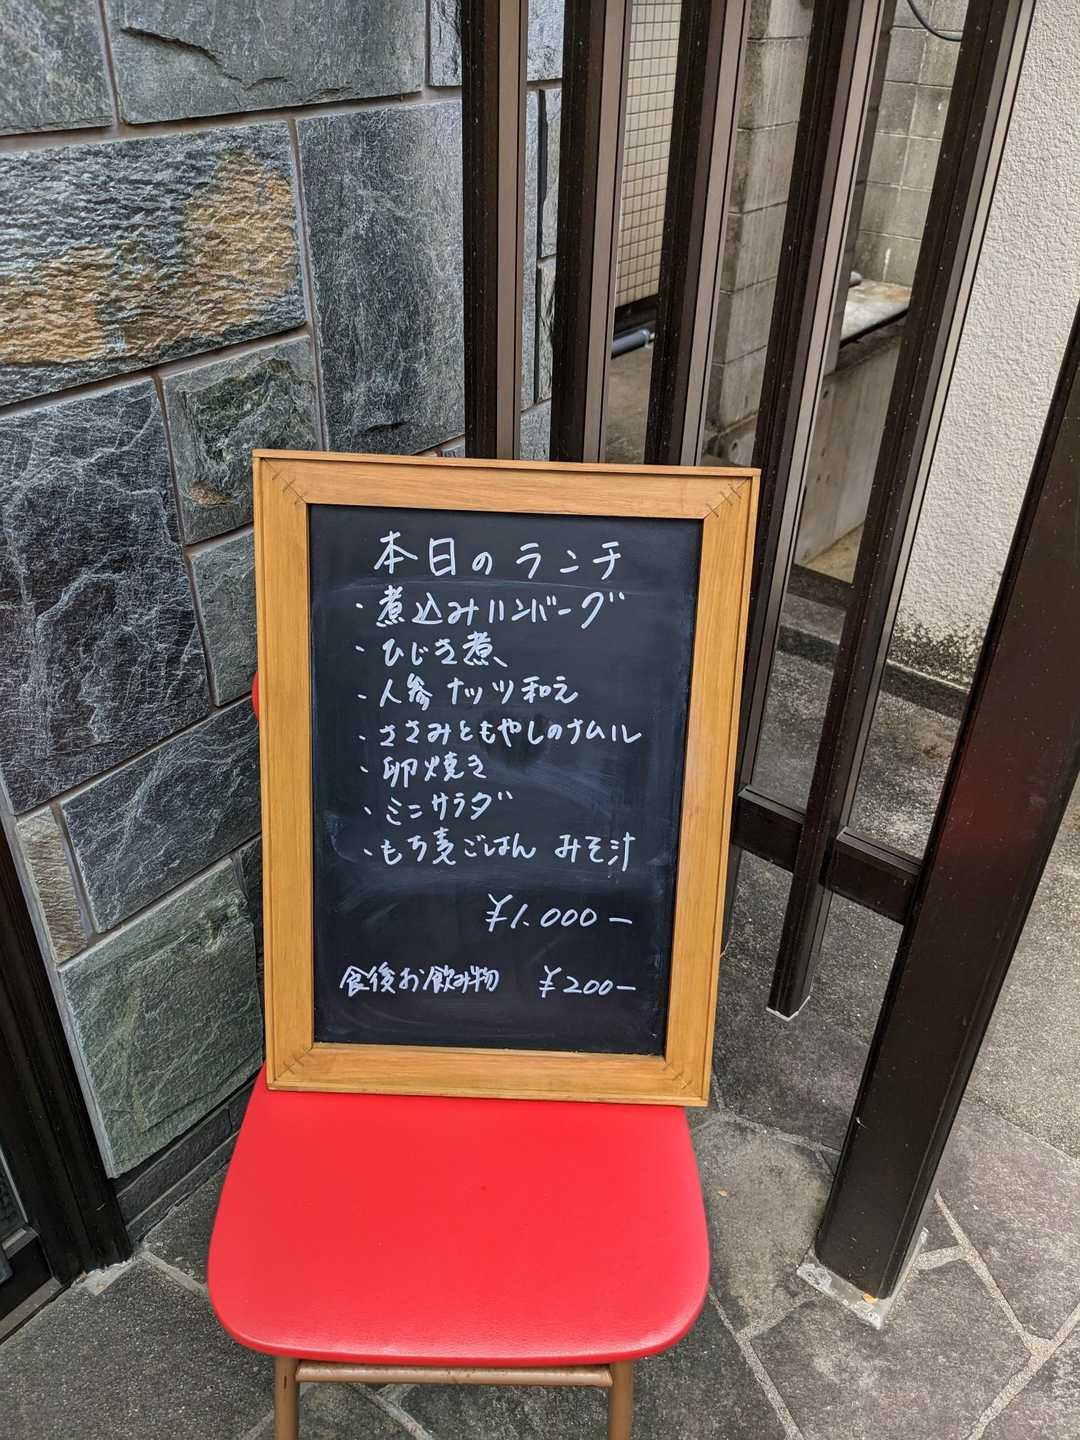 本日のランチ
・煮込みハンバーグ
・ひじき煮、
・人参ナッツ和え
・ささみともやしのナムル
・卵焼き
・ミニサラダ
・もち麦ごはん みそ汁
¥1.000ー
食後お飲み物 ¥200ー